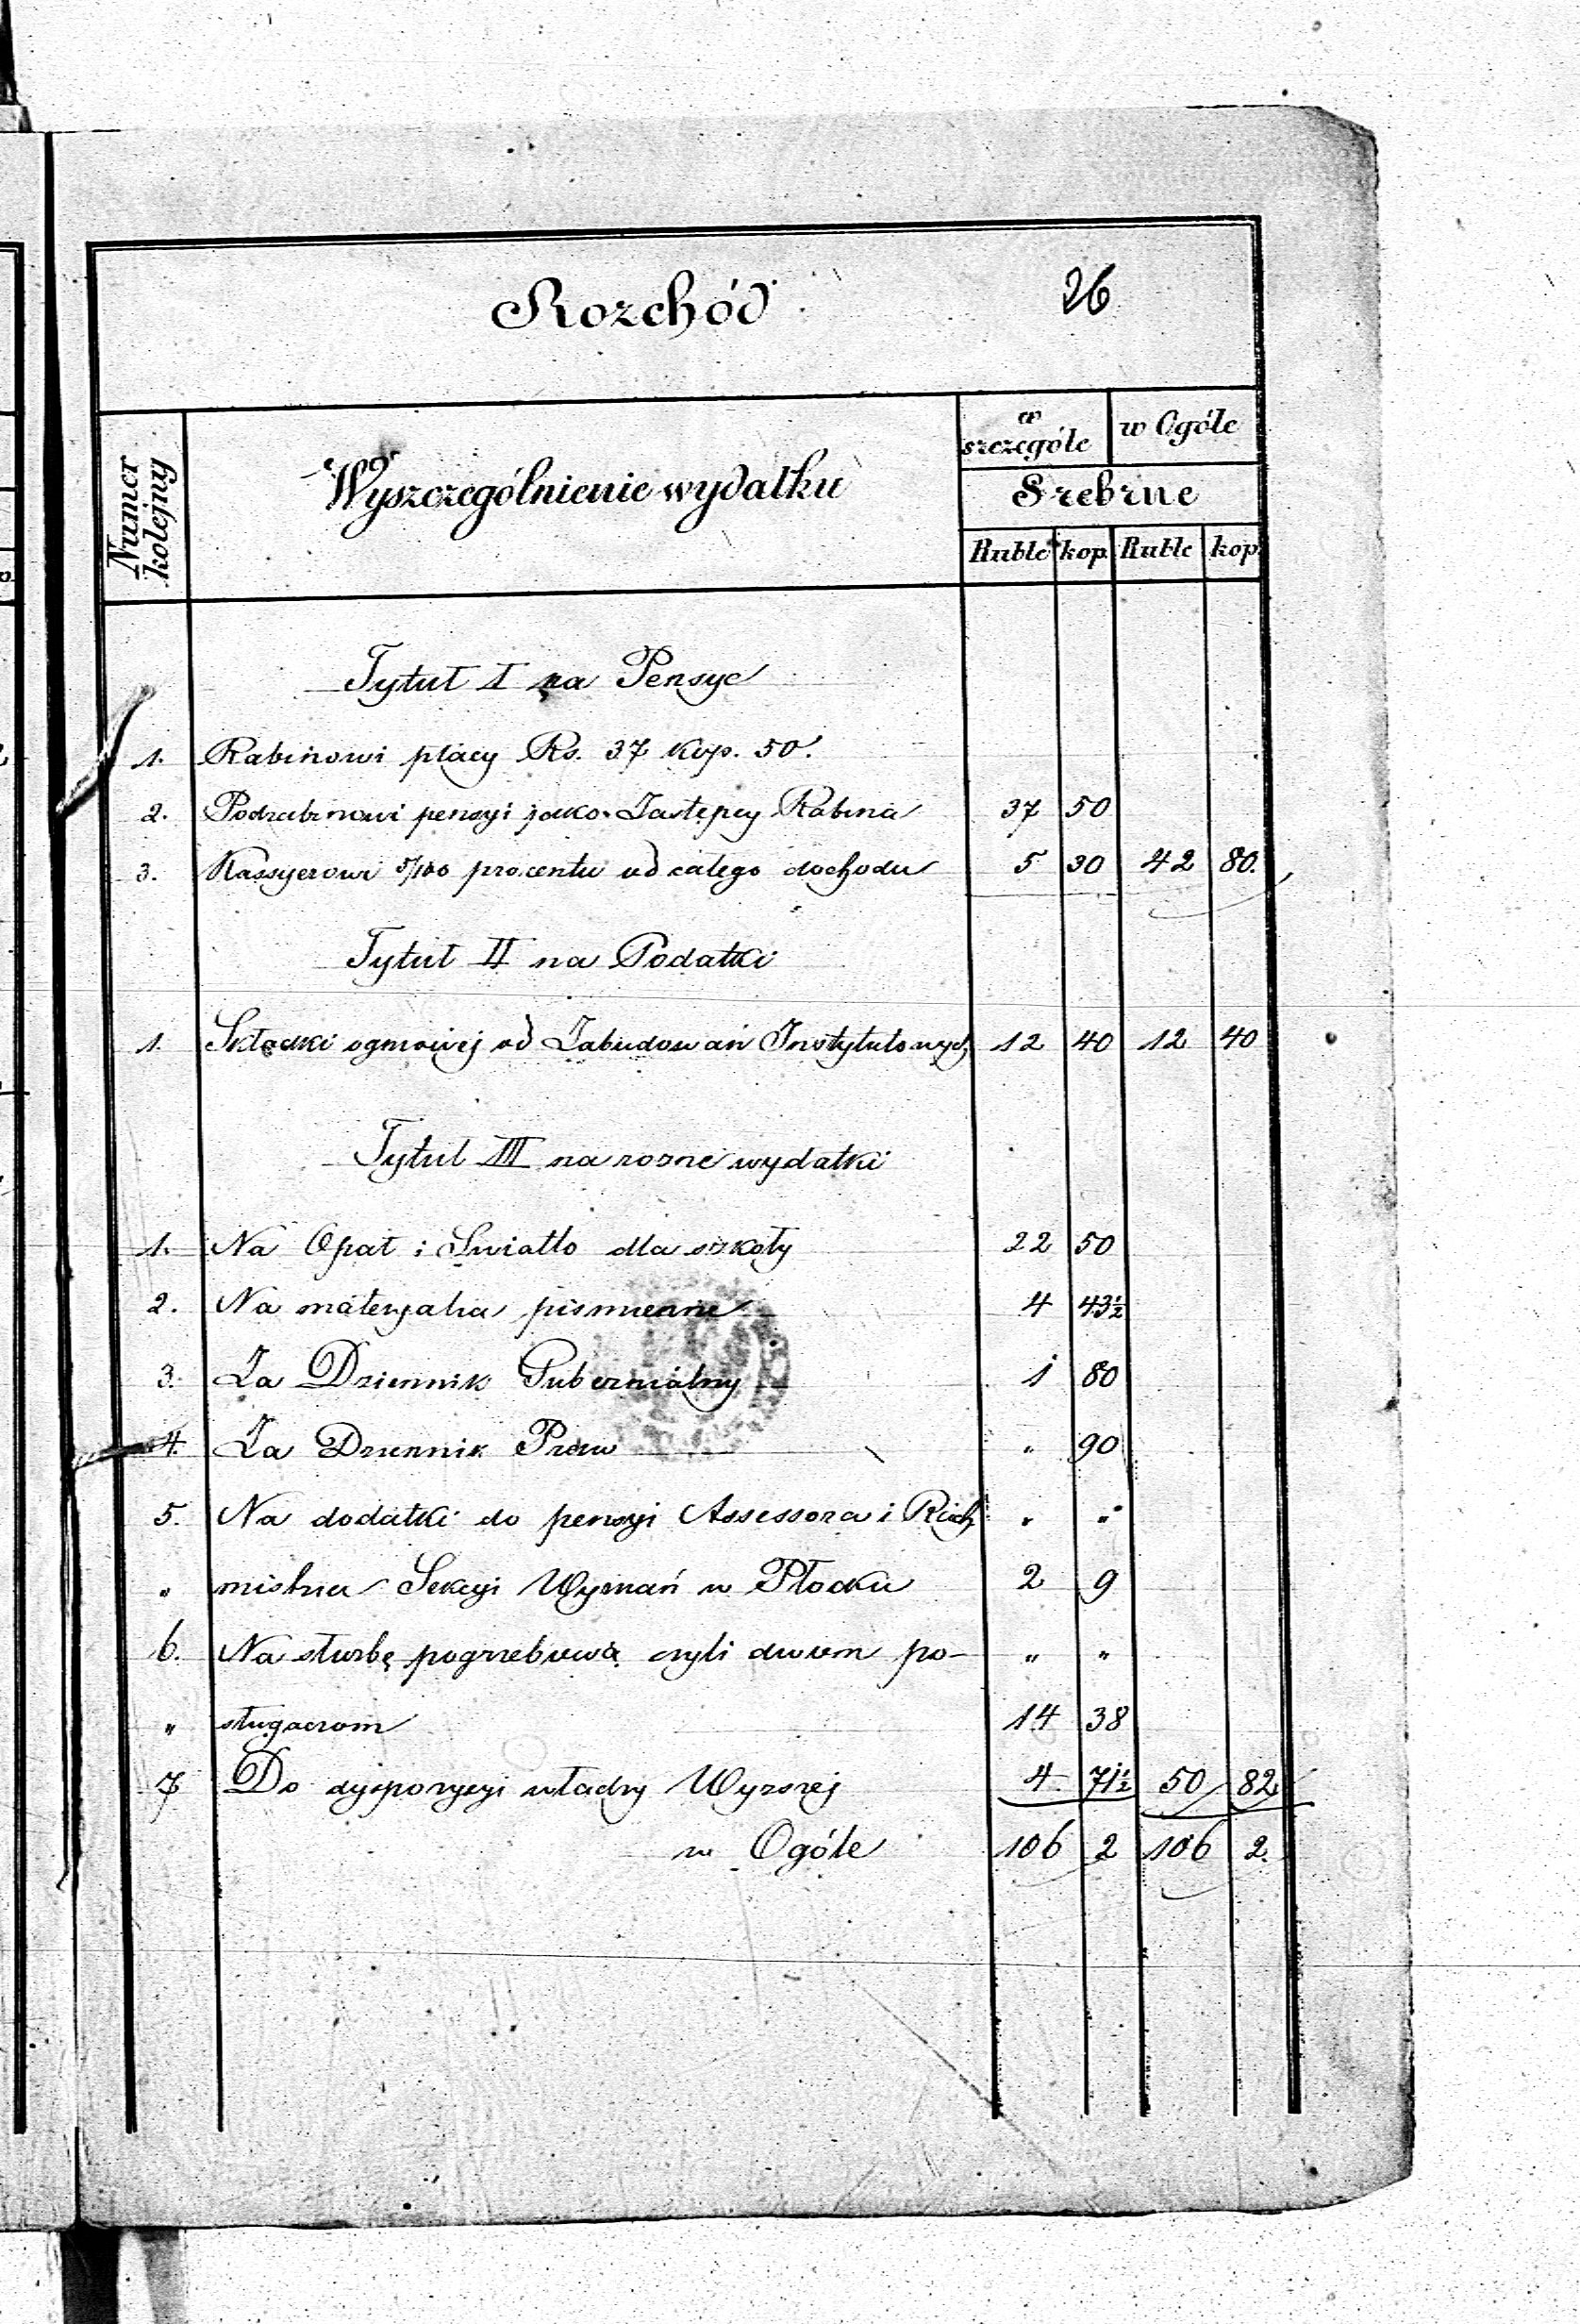 Rozchód 26
Numer kolejny
Wyszczególnienie wydatku
w szczególe w Ogóle
Srebrne
Ruble kop. Ruble kop.
Tytuł I na Pensye
1. Rabinowi płacy Rs. 37 kop. 50.
2. Podrabinowi pensyi jako Zastępcy Rabina 37 50
3. Kassyerowi 5/100 procentu od całego dochodu 5 30 42 80.
Tytuł II na Podatki
1. Składki ogniowej od Zabudowań Instytutowych 12 40 12 40
Tytuł III na rozne wydatki
1. Na Opał i Swiatło dla szkoły 22 50
2. Na materyalia pismienne 4 43½
3. Za Dziennik Gubernialny 1 80
4. Za Dziennik Praw " 90
5. Na dodatki do pensyi Assessora i Rach " "
" mistrza Sekcyi Wyznań w Płocku 2 9
6. Na słurbę pogrzebową czyli dwum po- " "
" sługaczom 14 38
7 Do dyspozycyi władzy Wyzszej 4 71½ 50 82
w Ogóle 106 2 106 2.